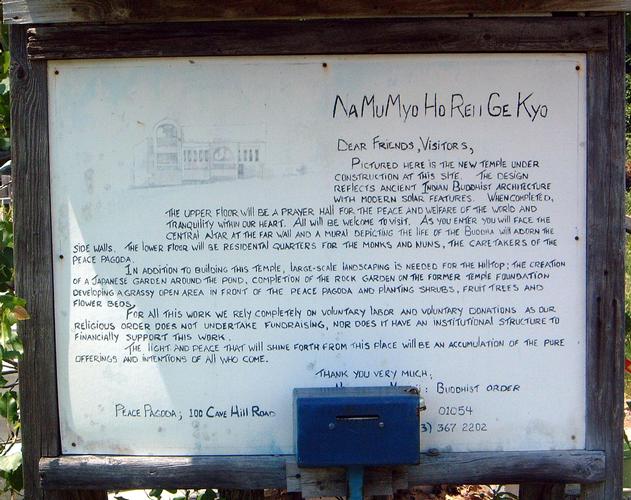 NaMuMyo Ho Ren Ge Kyo
Dear Friends, Visitors,
Pictured here is the new temple under
construction at this site. The design
reflects ancient Indian Buddhist architecture
with modern solar features. When completed,
the upper floor will be a prayer hall for the peace and welfare of the world and
tranquility within our heart. All will be welcome to visit. As you enter you will face the
central altar at the far wall and a mural depicting the life of the Buddha will adorn the
side walls. The lower floor will be residential quarters for the monks and nuns, the caretakers of the
Peace Pagoda.
In addition to building this temple, large-scale landscaping is needed for the hilltop; the creation
of a Japanese garden around the pond, completion of the rock garden on the former temple foundation
developing a grassy open area in front of the Peace Pagoda and planting shrubs, fruit trees and
flower beds.
For all this work we rely completely on voluntary labor and voluntary donations as our
religious order does not undertake fundraising, nor does it have an institutional structure to
financially support this work.
The light and peace that will shine forth from this place will be an accumulation of the pure
offerings and intentions of all who come.
Thank you very much;
: Buddhist Order
Peace Pagoda; 100 Cave Hill Road
01054
3) 367 2202